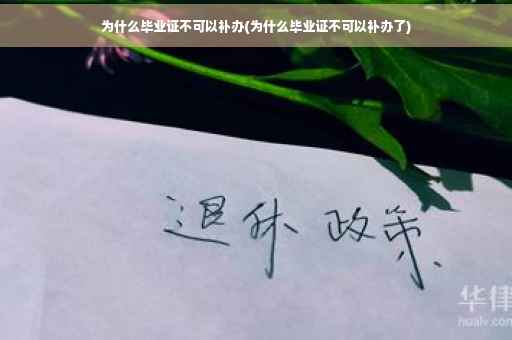 为什么毕业证不可以补办(为什么毕业证不可以补办了)
退休 政策
华律
hualv.com